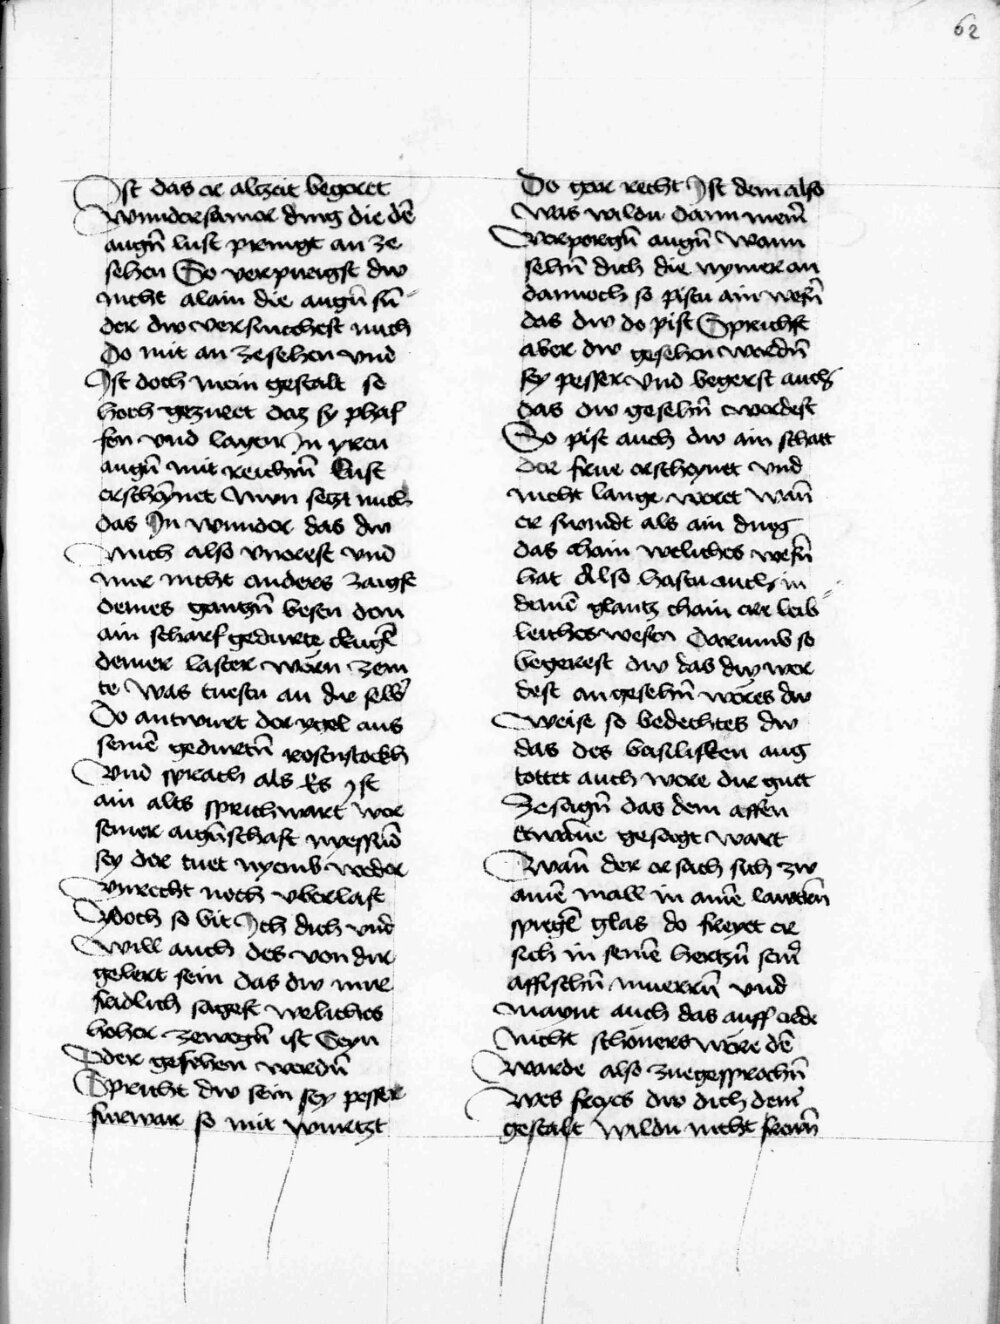 62
Ist das er alczeit begeret
wundersamer ding die dē
augn̄ lust pringt an ze
sehen So verpirigst dw
nicht alain die augn̄ sūn
der dw versuechest mich
Do mit an zesehen vnd
Ist doch mein gestalt so
hoch geziret daz sy phaf
fen vnd layen In yren
augn̄ mit reichm̄ lust
erscheynet Nun seczt mich
das In wunder das dw
mich also vnerest vnd
mir nicht anders zaigst
deines gantzn̄ besen den
ain scharf gedurnte
deiner laster worn zem
te Was tuestu an die selb
Do antwurt der ygel aus
seinē gedurntn̄ rosenstockh
vnd sprach als Es yst
ain alts sprichwart wer
seiner aigūschaft
sey der tuet nyemb weder
vnrecht noch vberlast
Ydoch so bit Ich dich vnd
will auch des von dir
gelert sein das dw mir
fridlich sagest weliches
hoher zewegn̄ ist Seyn
Oder gesehen werdn̄
Spricht dw sein sey pesser
furwar so mit wurtzt
Do gar recht Ist dem also
Was wildu dann mein̄
verporgn̄ augn̄ wann
sehn̄ dich die nymer an
dannoch so pistu ain wesn̄
das dw do pist Sprichst
aber dw gesehen werdn̄
sey pesser vnd begerst auch
das dw gesehn̄ werdest
So pist auch dw ain schatt
der frue erscheynet vnd
nicht lange weret wān
er swindt als ain ding
das chain weliches wesn̄
hat Also hastu auch in
deinē glantz chain err leib
leiches wesen Darumb so
begerest dw das dw wer
dest angesehn̄ weres dw
Weise so bedechtes dw
das des basilisken aug
tottet auch were dir guet
Zesagn̄ das dem affen
etwāne gesagt wart
Wān der ersach sich zw
ainē mall in ainē lawttrn̄
spiegl glas do freyet er
sich in seinē hertzn̄ seīr
affischn̄ vnd
maynt auch das auff erde
nicht schoners were dē
Warde also zuegesprochn̄
Wes freyes dw dich deinr
gestalt wildu nicht